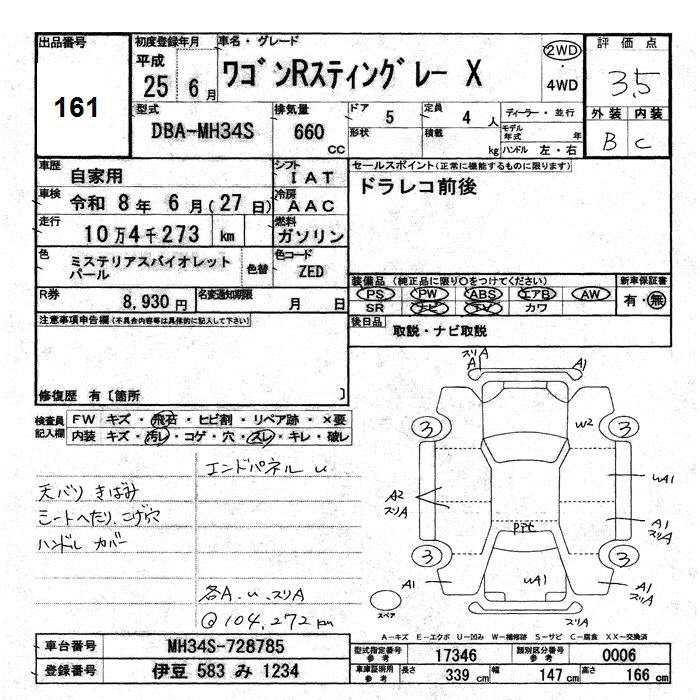 出品番号
161
初度登録年月
平成
25年 6月
車名・グレード
ワゴンRスティングレー X
2WD
・
4WD
評価点
3.5
外装 内装
B C
型式
DBA-MH34S
排気量
660
cc
ドア 5
定員 4 人
形状
積載 kg
ディーラー・並行
モデル年式 年
ハンドル 左・右
車歴
自家用
シフト
IAT
車検
令和 8年 6月(27日)
冷房
AAC
走行
10万4千273 km
燃料
ガソリン
色
ミステリアスバイオレット
パール
色替
色コード
ZED
R券
8,930円
名変通知期限
月 日
セールスポイント(正常に機能するものに限ります)
ドラレコ前後
装備品 (純正品に限り○をつけてください)
新車保証書
PS PW ABS エアB AW
有・無
SR ナビ TV カワ
後日品
取説・ナビ取説
注意事項申告欄(不具合内容等は具体的に記入して下さい)
修復歴 有〔箇所 〕
検査員
記入欄
FW キズ・飛石・ヒビ割・リペア跡・×要
内装 キズ・汚レ・コゲ・穴・スレ・キレ・破レ
エンドパネル u
天バリ きばみ
シートへたり、こげ穴
ハンドル カバー
各A.u.スリA
@104,272km
スリA
A
A1
3
3
W2
uA1
A2
スリA
A1
スリA
3
3
uA1
A1
A1
スリA
スリA
スペア
A-キズ E-エクボ U-凹み W-補修跡 S-サビ C-腐食 XX-交換済
車台番号
MH34S-728785
登録番号
伊豆 583 み 1234
型式指定番号
参考
17346
類別区分番号
参考
0006
車庫証明用
参考
長さ 339 cm
幅 147 cm
高さ 166 cm